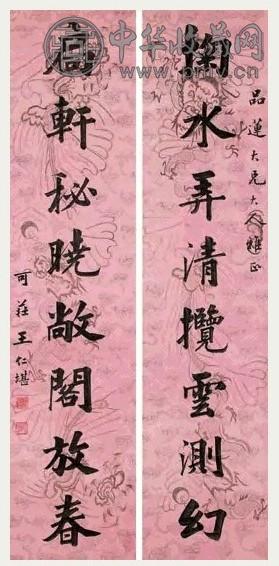 中华收藏网
品蓮大兄大人雅正
掬水弄清攬雲測幻
高軒秘曉敞閣放春
可莊王仁堪